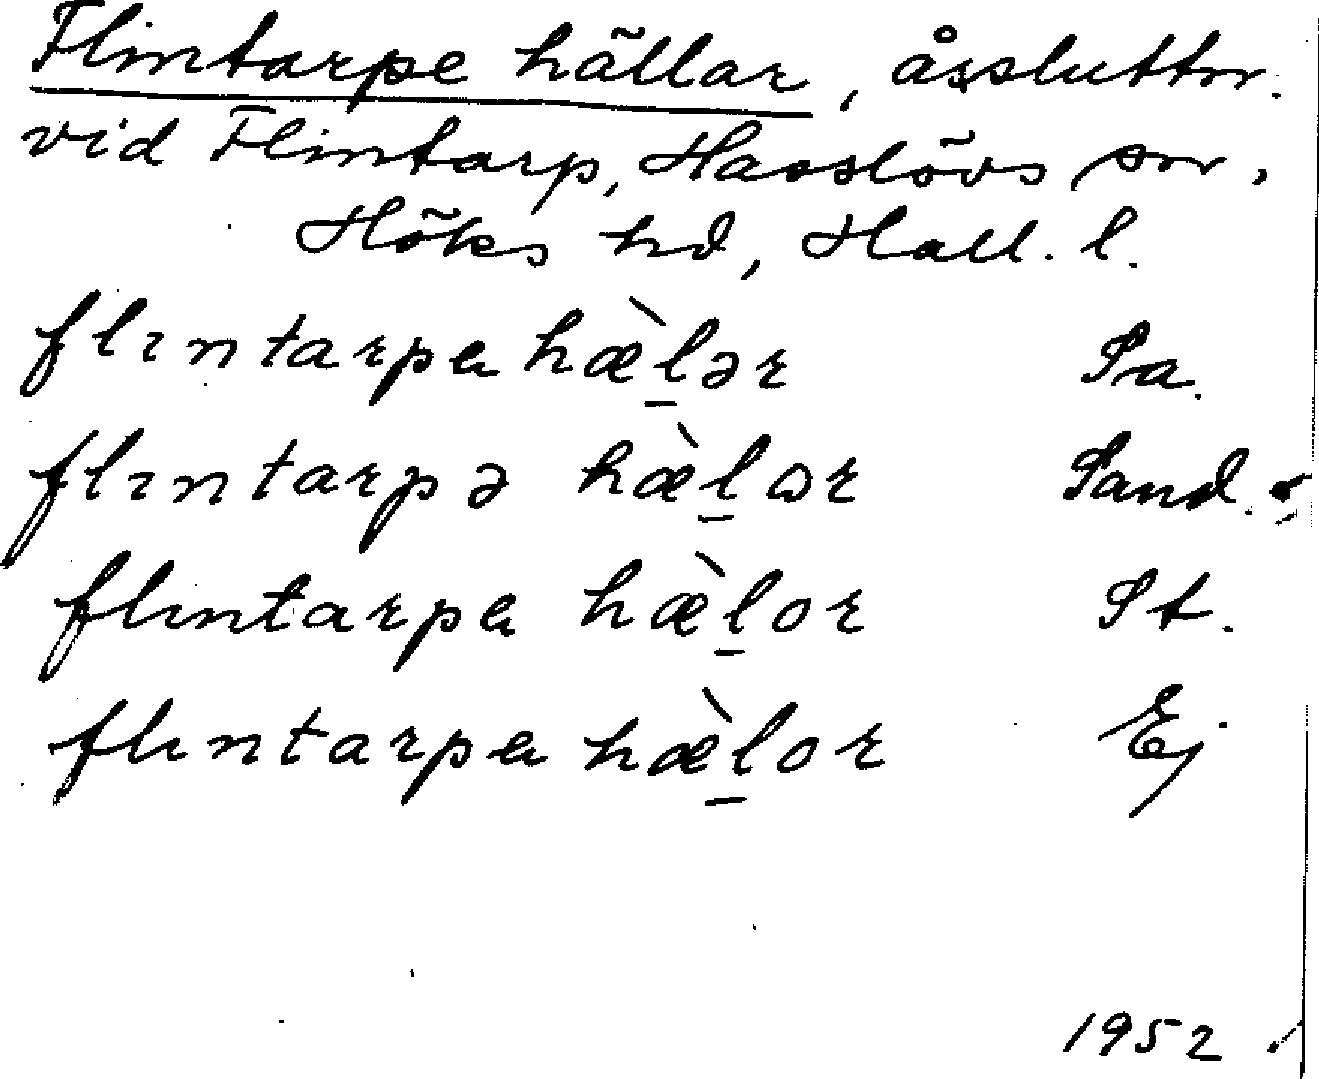 Flintarpe hällar, åssluttn.
vid Flintarp, Hasslövs sn,
Höks hd, Hall. l.
flıntarpa hæ̀l̠ər Sa.
flıntarpə hæ̀l̠ɷr Sand.
flıntarpa hæ̀l̠or St.
flıntarpa hæ̀l̠or Ej.
1952